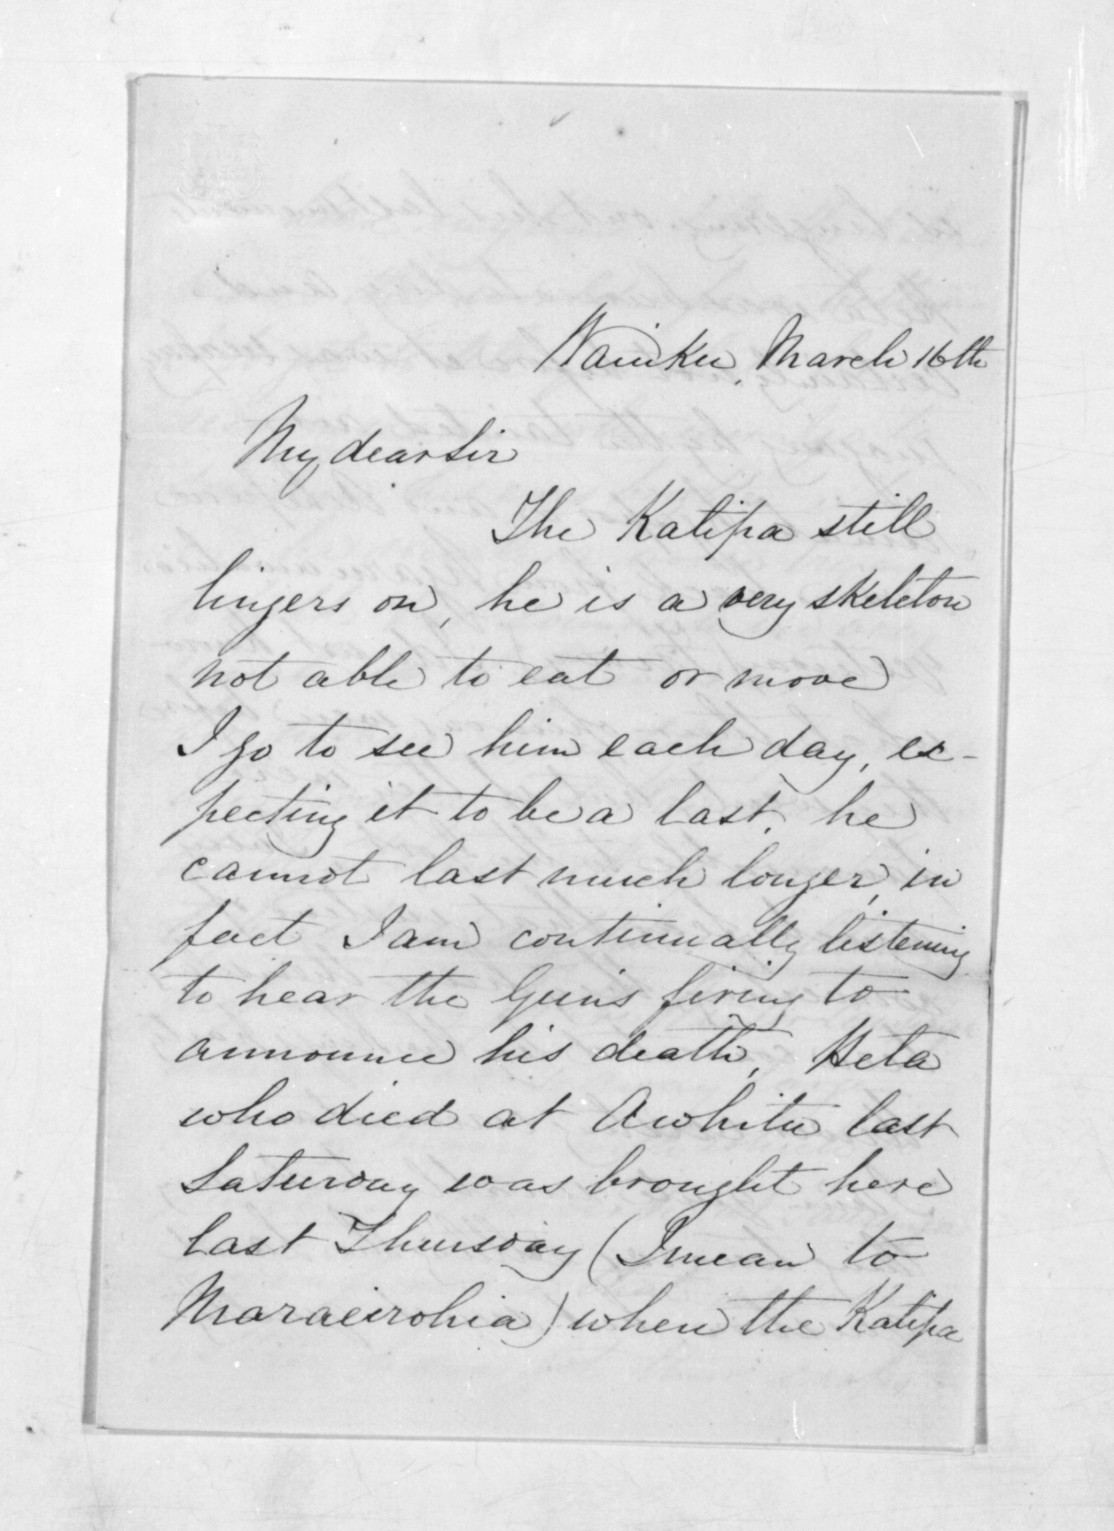 Waiuku, March 16th
My dear Sir
The Katipa still
lingers on, he is a very skeleton
not able to eat or move
I go to see him each day, ex-
pecting it to be a last, he
cannot last much longer, in
fact I am continually listening
to hear the Guns firing to
announce his death, Heta
who died at Awhitu last
Saturday was brought here
last Thursday (I mean to
Maraeirohia) when the Katipa